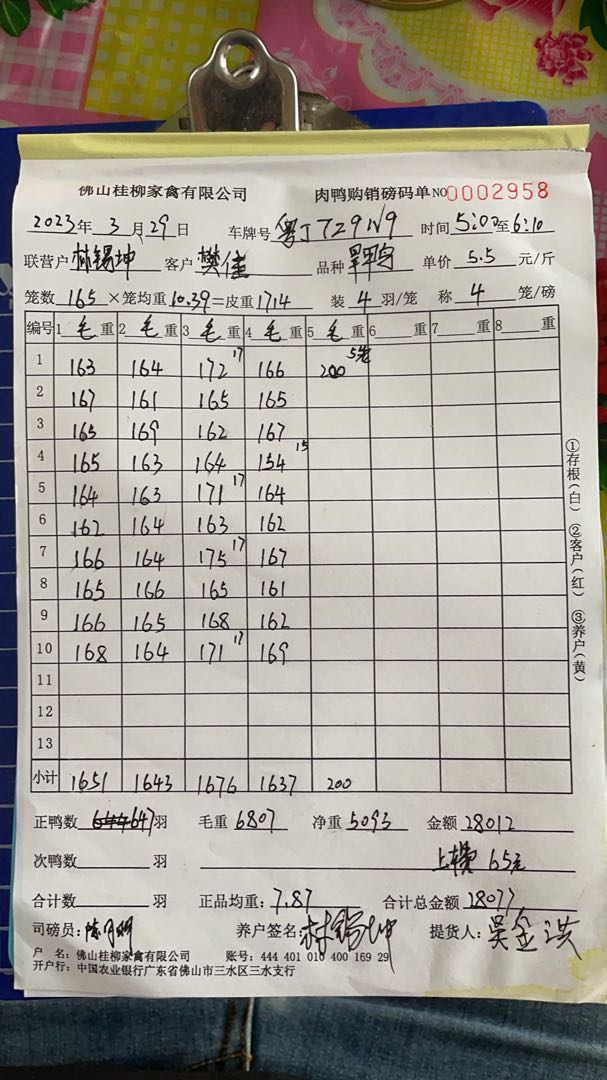 佛山桂柳家禽有限公司 肉鸭购销磅码单 NO 0002958
2023年 3月 29日 车牌号 粤J729N9 时间 5:00至6:10
联营户 林锡坤 客户 樊佳 品种 单价 5.5 元/斤
笼数 165 ×笼均重 10.39 =皮重 1714 装 4 羽/笼 称 4 笼/磅
编号 1 毛 重 2 毛 重 3 毛 重 4 毛 重 5 毛 重 6 重 7 重 8 重
1 163 164 172 17 166 200 5笼
2 167 161 165 165
3 165 169 162 167
4 165 163 164 154 15
5 164 163 171 17 164
6 162 164 163 162
7 166 164 175 17 167
8 165 166 165 161
9 166 165 168 162
10 168 164 171 17 169
11
12
13
小计 1651 1643 1676 1637 200
正鸭数 647 羽 毛重 6807 净重 5093 金额 28012
次鸭数 羽 上车费 65元
合计数 羽 正品均重: 7.87 合计总金额 28077
司磅员: 养户签名: 林锡坤 提货人: 吴金洪
户 名: 佛山桂柳家禽有限公司 账号: 444 401 010 400 169 29
开户行: 中国农业银行广东省佛山市三水区三水支行
①存根(白) ②客户(红) ③养户(黄)